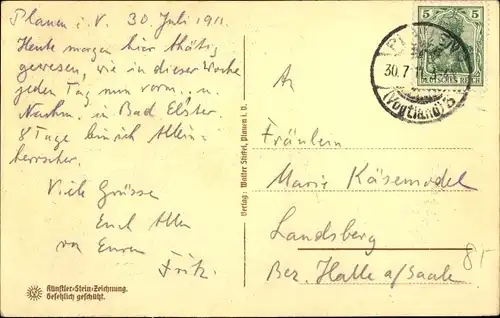 Plauen i. V. 30. Juli 1911.
Heute morgen hier thätig
gewesen, wie in dieser Woche
jeden Tag nun vorm. u.
Nachm. in Bad Elster.
8 Tage bin ich Allein-
herrscher.
Viele Grüsse
Euch Allen
von Eurem
Fritz.
Künstler-Stein-Zeichnung.
Gesetzlich geschützt.
Verlag: Walter Stickel, Plauen i. V.
5 5
DEUTSCHES REICH
PLAUEN
30.7.11
(Vogtland)
An
Fräulein
Marie Käsemodel
Landsberg
Bez. Halle a/Saale
8/-